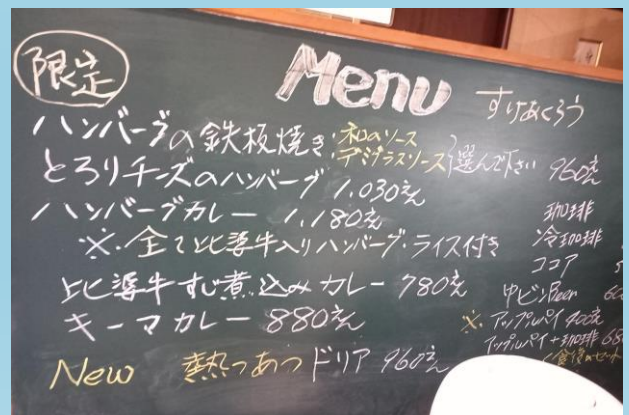 限定
Menu
すけあくろう
ハンバーグの鉄板焼き:和のソース
デミグラスソース}選んで下さい 960円
とろりチーズのハンバーグ 1,030円
ハンバーグカレー 1,180円
※・全て比婆牛入りハンバーグ・ライス付き
比婆牛すじ煮込みカレー 780円
キーマカレー 880円
New 熱つあつドリア 960円
珈琲
冷珈琲
ココア
中ビンBeer
※・アップルパイ 400円
アップルパイ+珈琲 680